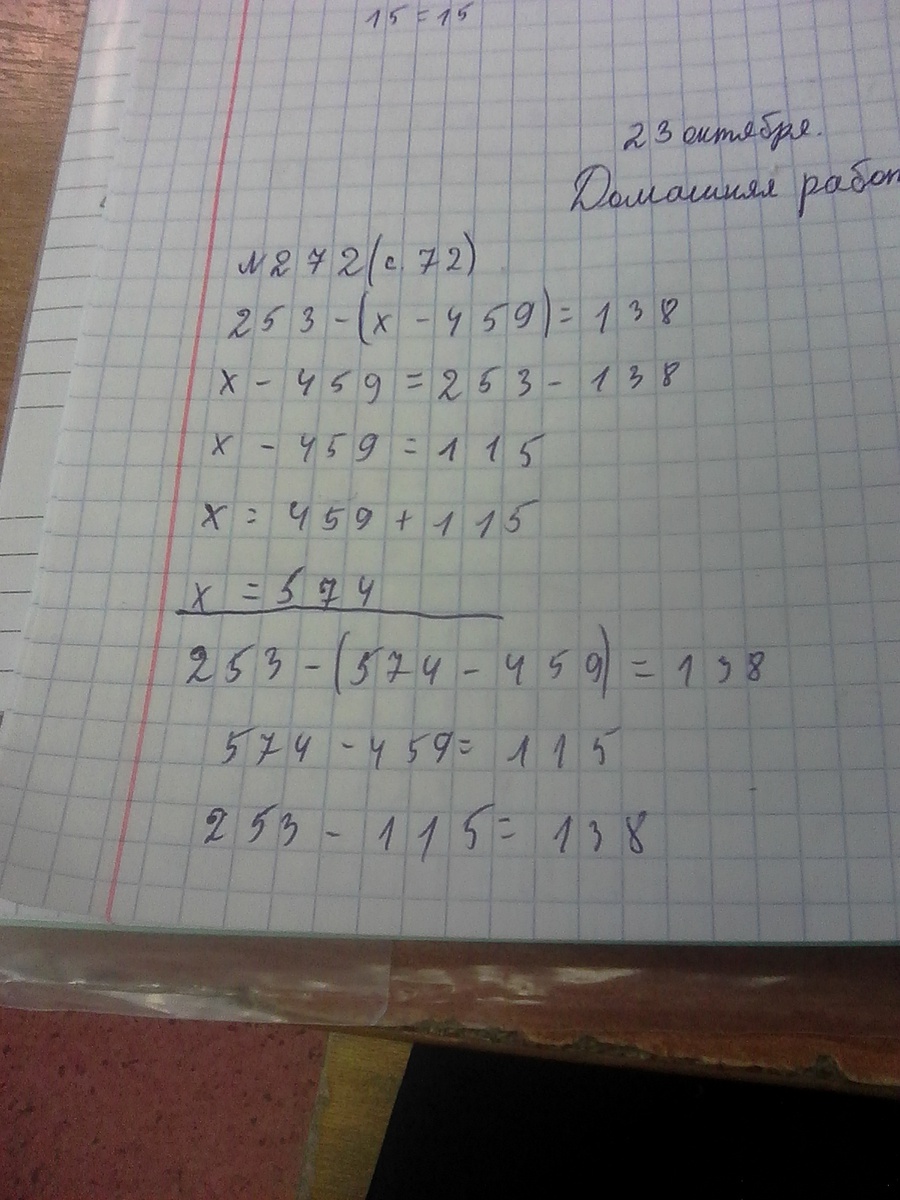 15 = 15
23 октября.
Домашняя работ
№272 (с. 72)
253 - (x - 459) = 138
x - 459 = 253 - 138
x - 459 = 115
x = 459 + 115
x = 574
253 - (574 - 459) = 138
574 - 459 = 115
253 - 115 = 138